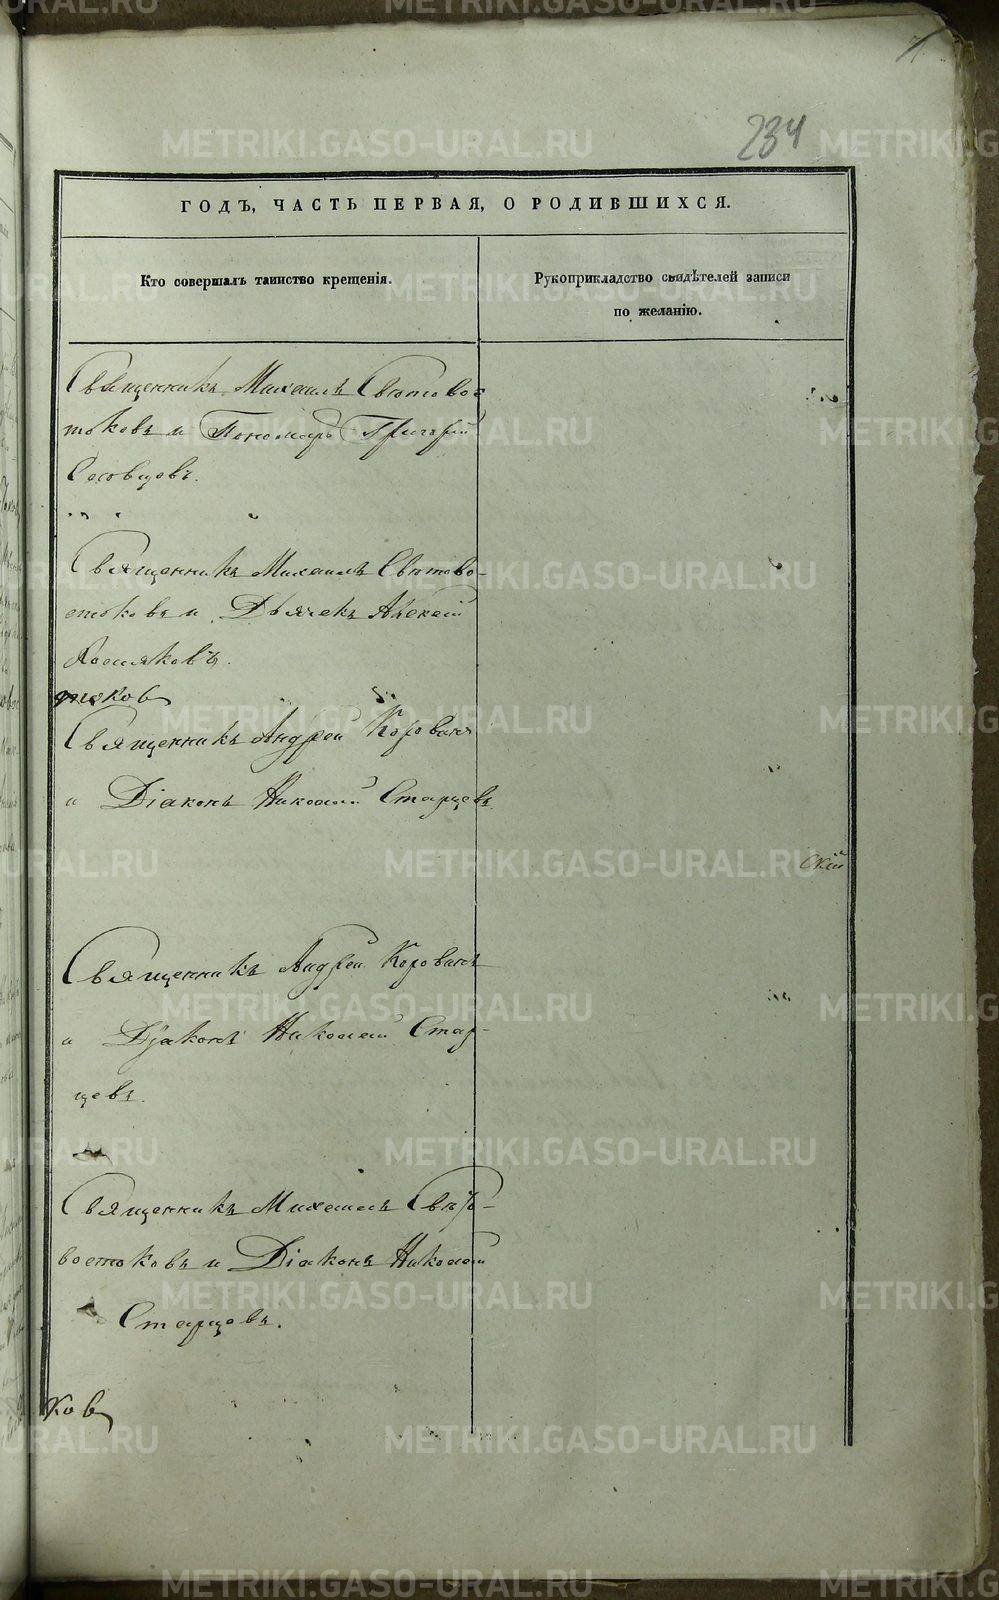 234
ГОДЪ, ЧАСТЬ ПЕРВАЯ, О РОДИВШИХСЯ.
Кто совершалъ таинство крещенія.
Рукоприкладство свидѣтелей записи
по желанію.
Священникъ Михаилъ Свѣтовос
токовъ и Пономарь Григорій
Священникъ Михаилъ Свѣтово-
стоковъ и Дьячекъ Алексій
Священникъ Андрей Корован
и Діаконъ Николай Старцевъ
скій
Священникъ Андрей Корованъ
и Діаконъ Николай Стар-
цевъ.
Священникъ Михаилъ Свѣто-
востоковъ и Діаконъ Николай
Старцевъ.
ков
METRIKI.GASO-URAL.RU